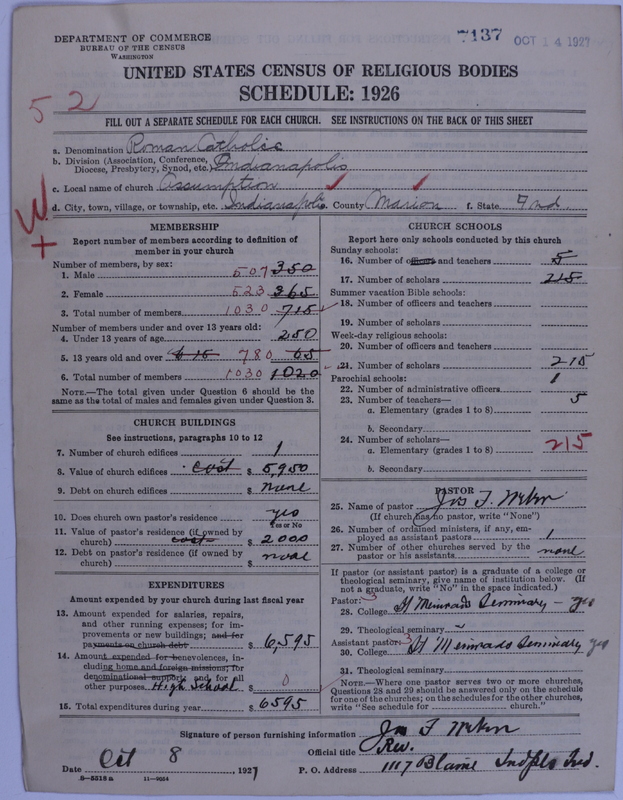 DEPARTMENT OF COMMERCE
BUREAU OF THE CENSUS
WASHINGTON
7137 OCT 14 1927
UNITED STATES CENSUS OF RELIGIOUS BODIES
SCHEDULE: 1926
52
FILL OUT A SEPARATE SCHEDULE FOR EACH CHURCH. SEE INSTRUCTIONS ON THE BACK OF THIS SHEET
a. Denomination Roman Catholic
b. Division (Association, Conference, Diocese, Presbytery, Synod, etc.) Indianapolis
c. Local name of church Assumption
d. City, town, village, or township, etc. Indianapolis e. County Marion f. State Ind.
W
+
MEMBERSHIP
Report number of members according to definition of
member in your church
Number of members, by sex:
1. Male 507 350
2. Female 523 365
3. Total number of members 1030 715
Number of members under and over 13 years old:
4. Under 13 years of age 250
5. 13 years old and over 615 780 65
6. Total number of members 1030 1020
NOTE.—The total given under Question 6 should be
same as the total of males and females given under Question 3.
CHURCH BUILDINGS
See instructions, paragraphs 10 to 12
7. Number of church edifices 1
8. Value of church edifices cost $ 5,950
9. Debt on church edifices $ none
10. Does church own pastor's residence yes
Yes or No
11. Value of pastor's residence (if owned by
church) cost $ 2000
12. Debt on pastor's residence (if owned by
church) $ none
EXPENDITURES
Amount expended by your church during last fiscal year
13. Amount expended for salaries, repairs,
and other running expenses; for im-
provements or new buildings; and for
payments on church debt $ 6,595
14. Amount expended for benevolences, in-
cluding home and foreign missions; for
denominational support; and for all
other purposes. High School $ 0
15. Total expenditures during year $ 6595
CHURCH SCHOOLS
Report here only schools conducted by this church
Sunday schools:
16. Number of officers and teachers 5
17. Number of scholars 215
Summer vacation Bible schools:
18. Number of officers and teachers
19. Number of scholars
Week-day religious schools:
20. Number of officers and teachers
21. Number of scholars 215
Parochial schools:
22. Number of administrative officers 1
23. Number of teachers—
a. Elementary (grades 1 to 8) 5
b. Secondary
24. Number of scholars—
a. Elementary (grades 1 to 8) 215
b. Secondary
PASTOR
25. Name of pastor Jos F.
(If church has no pastor, write "None")
26. Number of ordained ministers, if any, em-
ployed as assistant pastors 1
27. Number of other churches served by the
pastor or his assistants none
If pastor (or assistant pastor) is a graduate of a college or
theological seminary, give name of institution below. (If
not a graduate, write "No" in the space indicated.)
Pastor: 3
28. College St Meinrads Seminary – yes
29. Theological seminary
Assistant pastor: 3
30. College St Meinrads Seminary yes
31. Theological seminary
NOTE.—Where one pastor serves two or more churches,
Questions 28 and 29 should be answered only on the schedule
for one of the churches; on the schedules for the other churches,
write "See schedule for church."
Signature of person furnishing information Jos F
Official title Rev.
Date Oct 8, 1927 P. O. Address 1117 Blaine Indpls Ind.
8—5518a 11—9024